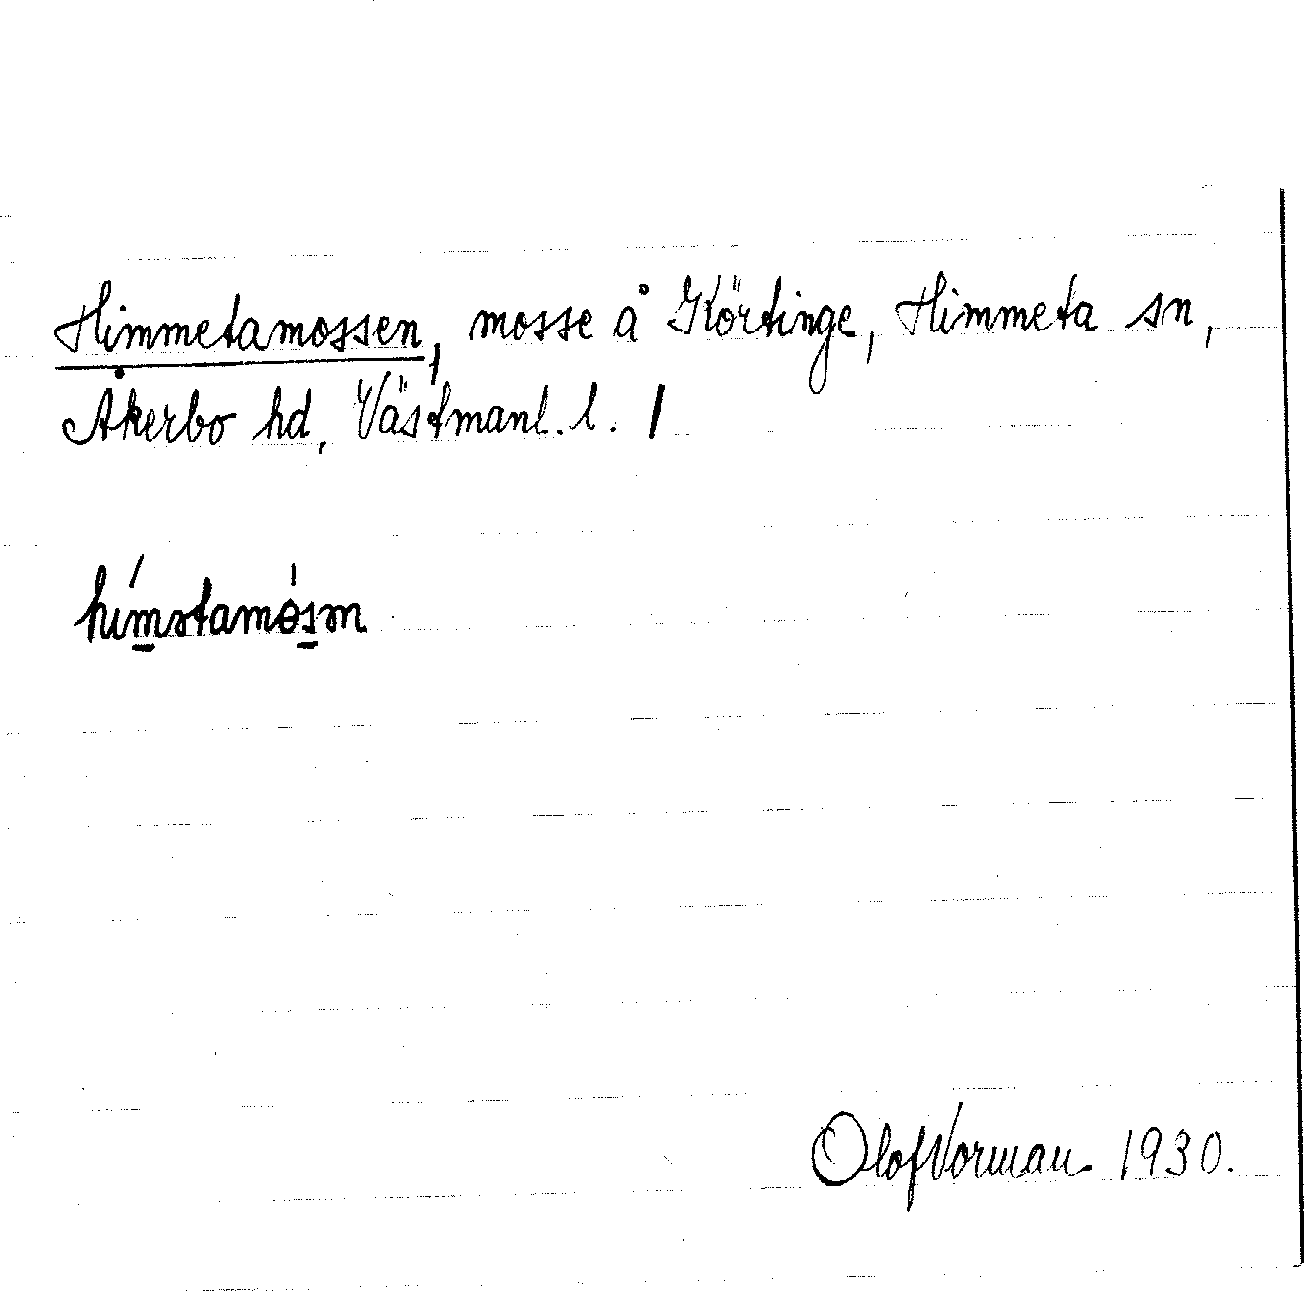 Himmetamossen, mosse å Körtinge, Himmeta sn,
Åkerbo hd, Västmanl. l.
hímətamòsən
Olof Norman 1930.